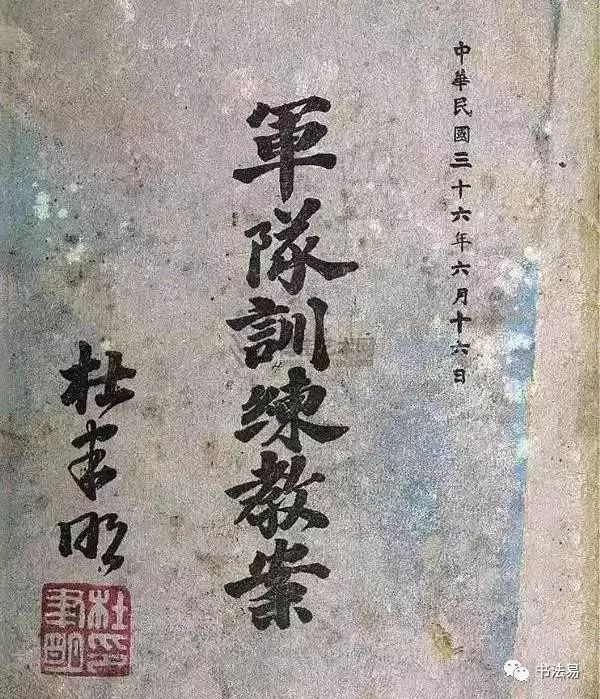 中華民國三十六年六月十六日
軍隊訓練教案
杜聿明
杜印
聿明
书法易